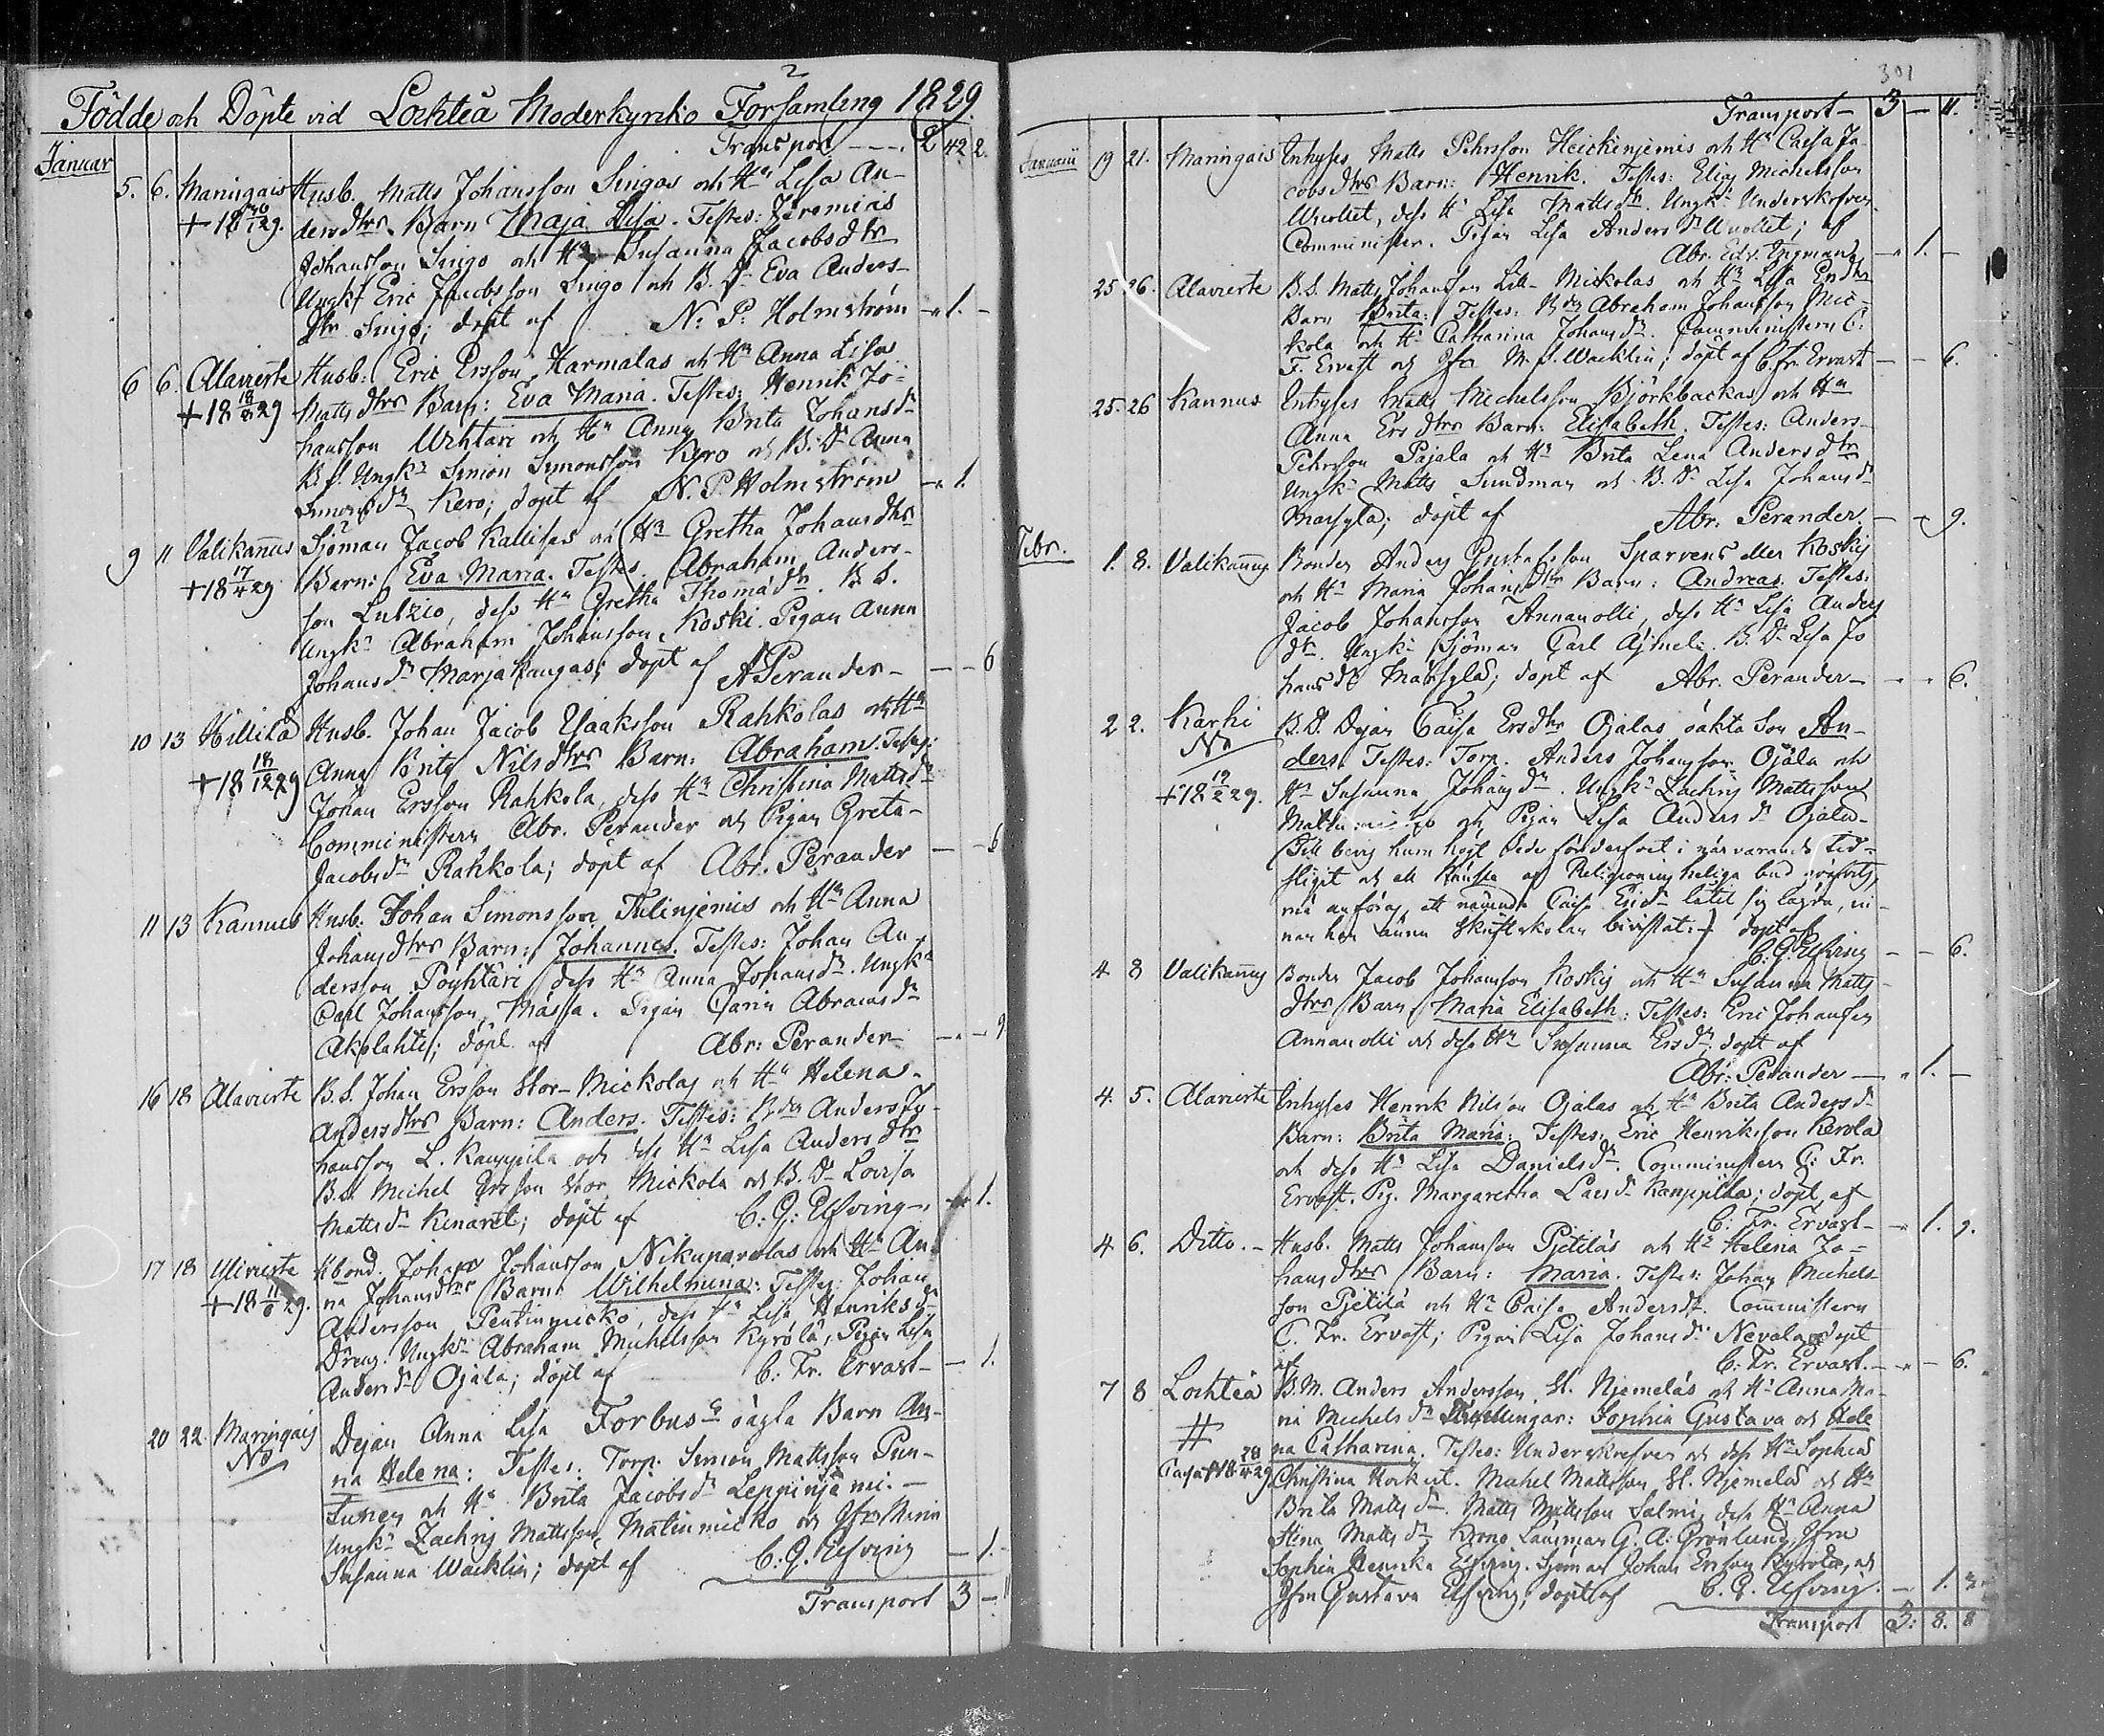 2
Födde och Döpte vid Lochteå Moderkyrko Församling 1829.
Transport - - - . 2 42 2.
Januar
5. 6. Maningais Husb. Matts Johansson Singos och Hu Lisa An-
+ 18 30/1 29. dersdtrs Barn Maja Lisa. Testes: Jeremias
Johansson Singo och Hu Susanna Jacobsdtr
Ungkn Eric Jacobsson Singo och B. Dr Eva Anders-
dtr Singo; döpt af N: P: Holmström - „ 1. -
6 6. Alavieste Husb: Eric Ersson Harmalas och Hu Anna Lisa
+ 18 29 Mattsdtrs Barn: Eva Maria. Testes: Henrik Jo-
hansson och Hu Anna Brita Johansdr
B.S. Ungkn Simon Simonsson Kero och B: Dr Anna
Simonsdr Kero; döpt af N. P. Holmström - „ 1.
9 11 Välikannus Sjöman Jacob Kallisas och Hu Gretha Johansdtrs
+ 18 17/4 29 Barn: Eva Maria. Testes. Abraham Anders-
son, dess Hu Gretha Thomædr. B. S.
Ungkn Abraham Johansson Koski. Pigan Anna
Johansdr Marjakangas; döpt af A Perander - - - 6
10 13 Hillilä Husb. Johan Jacob Isaaksson Rahkolas och Hu
+ 18 18/12 29 Anna Brita Nilsdtrs Barn: Abraham. Testes:
Johan Ersson Rahkola, dess Hu Christina Mattsdr
Comministern Abr. Perander och Pigan Greta
Jacobsdr Rahkola; döpt af Abr. Perander - - 6
11 13 Kannus Husb. Johan Simonsson Tulinjemis och Hu Anna
Johansdtrs Barn: Johannes. Testes: Johan An-
dersson Pöyhtäri dess Hu Anna Johansdr. Ungkn
Carl Johansson Mässa. Pigan Carin Abramsdr
Akolahti; döpt af Abr: Perander - „ - 9
16 18 Alavieste B. S. Johan Ersson Stor-Mickolas och Hu Helena
Andersdtrs Barn: Anders. Testes: Bdn Anders Jo-
hansson L. Kauppila och dess Hu Lisa Andersdtr
B.S. Michel Ersson Stor Mickola och B. Dr Lovisa
Mattsdr Kinaret; döpt af C: G: Elfving - „ 1.
17 18 Ylivieste Husb. Johan Johansson Nikuparolas och Hu An-
+ 18 29. na Johansdtrs Barn Wilhelmina: Testes: Johan
Andersson Pentinmicko, dess Hu Lisa Henriksdr
Dreng. Ungkn Abraham Michelsson Kyrölä, Pigan Lisa
Andersdr Ojala; döpt af C: Fr. Ervast - - 1.
20 22. Maningais Dejan Anna Lisa Forbus oägta Barn An-
No na Helena: Testes: Torp. Simon Mattsson Pun-
tunen och Hu Brita Jacobsdr Leppinjemi. -
Ungkn Zachris Mattsson Matinmicko och Jfrn Maria
Susanna Wacklin; döpt af C. G. Elfving - 1.
Transport 3 - 11
301
Transport - 3 - 11.
Januarii 19 21. Maningais Inhyses Matts Pehrsson Heickinjemis och Hu Caisa Ja-
cobsdtrs Barn: Henrik. Testes: Elias Michelsson
Wuollet, dess Hu Lisa Mattsdr. Ungkn Underskrefven
Comminister. Pigan Lisa Andersdr Wuollet; af
Abr. Edv. Engman - „ 1. -
25 26. Alavieste B.S. Matts Johansson Lill-Mickolas och Hu Lisa Ersdtrs
Barn Brita: Testes: Bdn Abraham Johansson Mic-
kola och Hu Catharina Johansdr. Comministern C:
F. Ervast och Jfrn M. S. Wacklin; döpt af C. Fr. Ervast - - 6.
25. 26 Kannus Inhyses Matts Michelsson Björkbackas och Hu
Anna Ersdtrs Barn: Elisabeth. Testes: Anders
Pehrsson Pajala och Hu Brita Lena Andersdtr
Ungkn Matts Sundman och B. Dr Lisa Johansdr
Marsylä; döpt af Abr. Perander. - - 9.
Febr. 1. 8. Välikannus Bonden Anders Gustafsson Sparvens eller Koskis
och Hu Maria Johansdtrs Barn: Andreas. Testes:
Jacob Johansson Annanolli, dess Hu Lisa Anders
dtr. Ungkn Sjöman Carl Ajmeli. B. Dr Lisa Jo
hansdr Märsylä; döpt af Abr. Perander - - - 6.
2 2. Karhi B. D. Dejan Caisa Ersdtrs Ojalas oäkta Son An-
No ders. Testes: Torp. Anders Johansson Ojala och
+ 18 19/2 29. Hu Susanna Johansdr. Ungkn Zachris Mattsson
Matinmicko och Pigan Lisa Andersdr Ojala -
(Till bevis huru högt sedeförderfvet i närvarande tid
stigit och att känslan af Religionens heliga bud,
må anföras, att nämnde Caisa Ersdr låtit sig lägra, in-
nan hon ännu Skriftskolan bivistat:) döpt af
C. G. Elfving - - 6.
4 8 Välikannus Bonden Jacob Johansson Koskis och Hu Susanna Matts-
dtrs Barn Maria Elisabeth: Testes: Eric Johansson
Annanolli och dess Hu Susanna Ersdr; döpt af
Abr: Perander - „ 1. -
4. 5. Alavieste Inhyses Henrik Nilsson Ojalas och Hu Brita Andersdr
Barn: Brita Maria: Testes: Eric Henriksson Kerola
och dess Hu Lisa Danielsdr. Comministern C: Fr.
Ervast. Pig. Margaretha Larsdr Kauppila; döpt af
C: Fr. Ervast - „ 1. 9.
4 6. Ditto. - Husb. Matts Johansson Pjetiläs och Hu Helena Jo-
hansdtrs Barn: Maria. Testes: Johan Michels-
son Pjetilä och Hu Caisa Andersdr. Comministern
C. Fr. Ervast; Pigan Lisa Johansdr Nevala, döpt
af C: Fr. Ervast. - „ - 6.
7 8 Lochteå B. M. Anders Andersson St. Njemeläs och Hu Anna Ma-
# ria Michelsdr Tvillingar: Sophia Gustava och Hele
na Catharina. Testes: Underskrefven och dess Hu Sophia
Christina Hockert. Michel Mattsson St. Njemelä och Hu
Brita Mattsdr. Matts Mattsson Salmis dess Hu Anna
Stina Mattsdr Länsman G. A: Grönlund, Jfrn
Sophia Henrika Elfving. Sjöman Johan Ersson Kyrölä, och
Jfrn Gustava Elfving; döpt af C. G. Elfving. - 1. 3
Transport 3: 8. 8